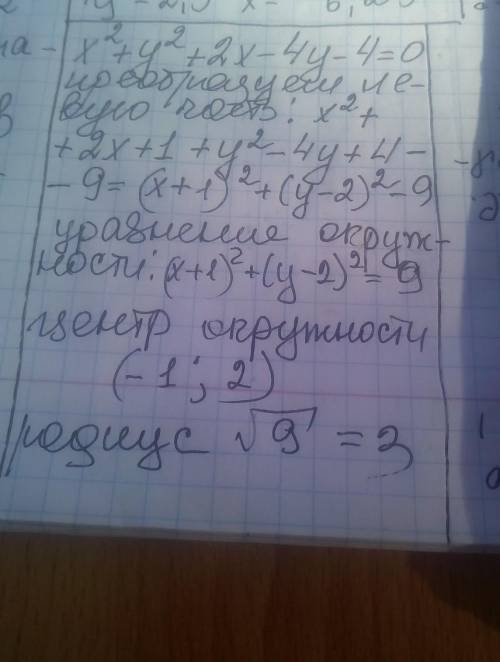 x²+y²+2x-4y-4=0
преобразуем ле-
вую часть: x²+
+2x+1+y²-4y+4-
-9=(x+1)²+(y-2)²-9
уравнение окруж-
ности: (x+1)²+(y-2)²=9
центр окружности
(-1; 2)
радиус √9 = 3